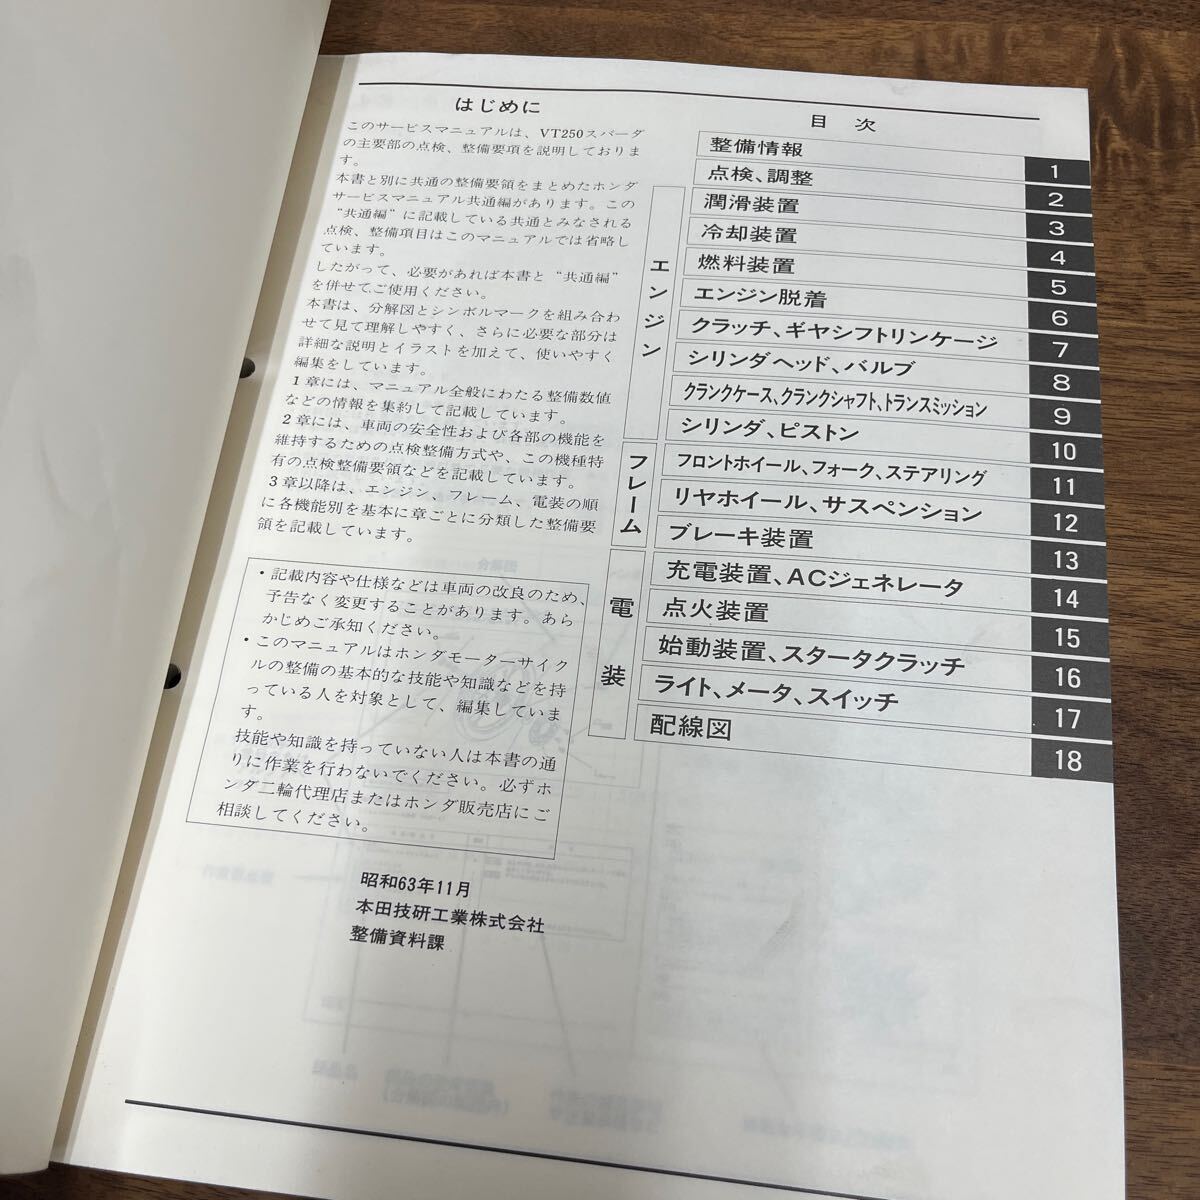 はじめに
このサービスマニュアルは、VT250スパーダ
の主要部の点検、整備要項を説明しておりま
す。
本書と別に共通の整備要領をまとめたホンダ
サービスマニュアル共通編があります。この
“共通編”に記載している共通とみなされる
点検、整備項目はこのマニュアルでは省略し
ています。
したがって、必要があれば本書と“共通編”
を併せてご使用ください。
本書は、分解図とシンボルマークを組み合わ
せて見て理解しやすく、さらに必要な部分は
詳細な説明とイラストを加えて、使いやすく
編集をしています。
1章には、マニュアル全般にわたる整備数値
などの情報を集約して記載しています。
2章には、車両の安全性および各部の機能を
維持するための点検整備方式や、この機種特
有の点検整備要領などを記載しています。
3章以降は、エンジン、フレーム、電装の順
に各機能別を基本に章ごとに分類した整備要
領を記載しています。
・記載内容や仕様などは車両の改良のため、
予告なく変更することがあります。あら
かじめご承知ください。
・このマニュアルはホンダモーターサイク
ルの整備の基本的な技能や知識などを持
っている人を対象として、編集していま
す。
技能や知識を持っていない人は本書の通
りに作業を行わないでください。必ずホ
ンダ二輪代理店またはホンダ販売店にご
相談してください。
昭和63年11月
本田技研工業株式会社
整備資料課
目次
整備情報 1
点検、調整 2
エンジン
潤滑装置 3
冷却装置 4
燃料装置 5
エンジン脱着 6
クラッチ、ギヤシフトリンケージ 7
シリンダヘッド、バルブ 8
クランクケース、クランクシャフト、トランスミッション 9
シリンダ、ピストン 10
フレーム
フロントホイール、フォーク、ステアリング 11
リヤホイール、サスペンション 12
ブレーキ装置 13
電装
充電装置、ACジェネレータ 14
点火装置 15
始動装置、スタータクラッチ 16
ライト、メータ、スイッチ 17
配線図 18